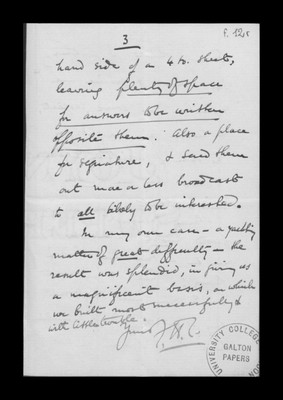 f. 12r
3
hand side of a 4to. sheets,
leaving plenty of space
for answers to be written
opposite them. Also a place
for signature, & send them
out more or less broadcast
to all likely to be interested.
In my own case – a
matter of great difficulty – the
result was splendid, in giving us
a magnificent basis, on which
we built most successfully &
with little trouble.
Yours
UNIVERSITY COLLEGE
GALTON
PAPERS